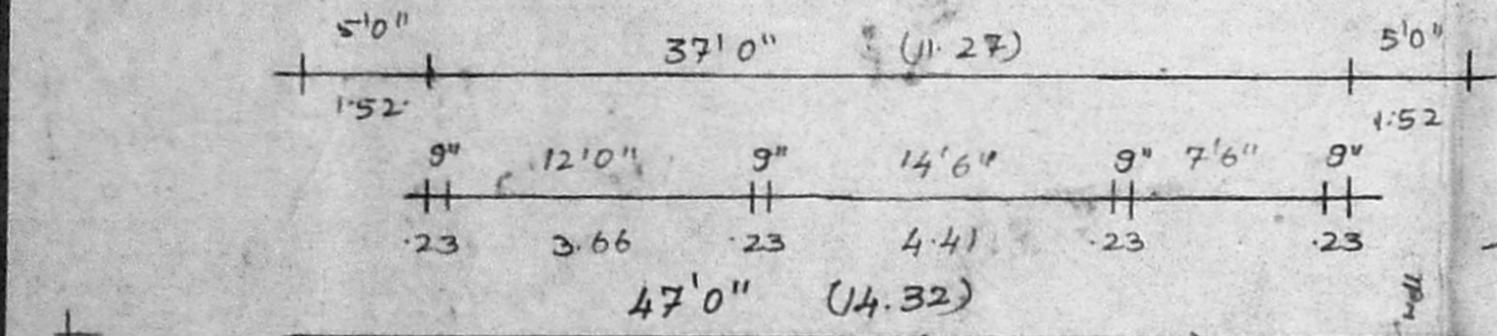 5'0" 37'0" (11.27) 5'0"
1.52 1.52
9" 12'0" 9" 14'6" 9" 7'6" 9"
.23 3.66 .23 4.41 .23 .23
47'0" (14.32)